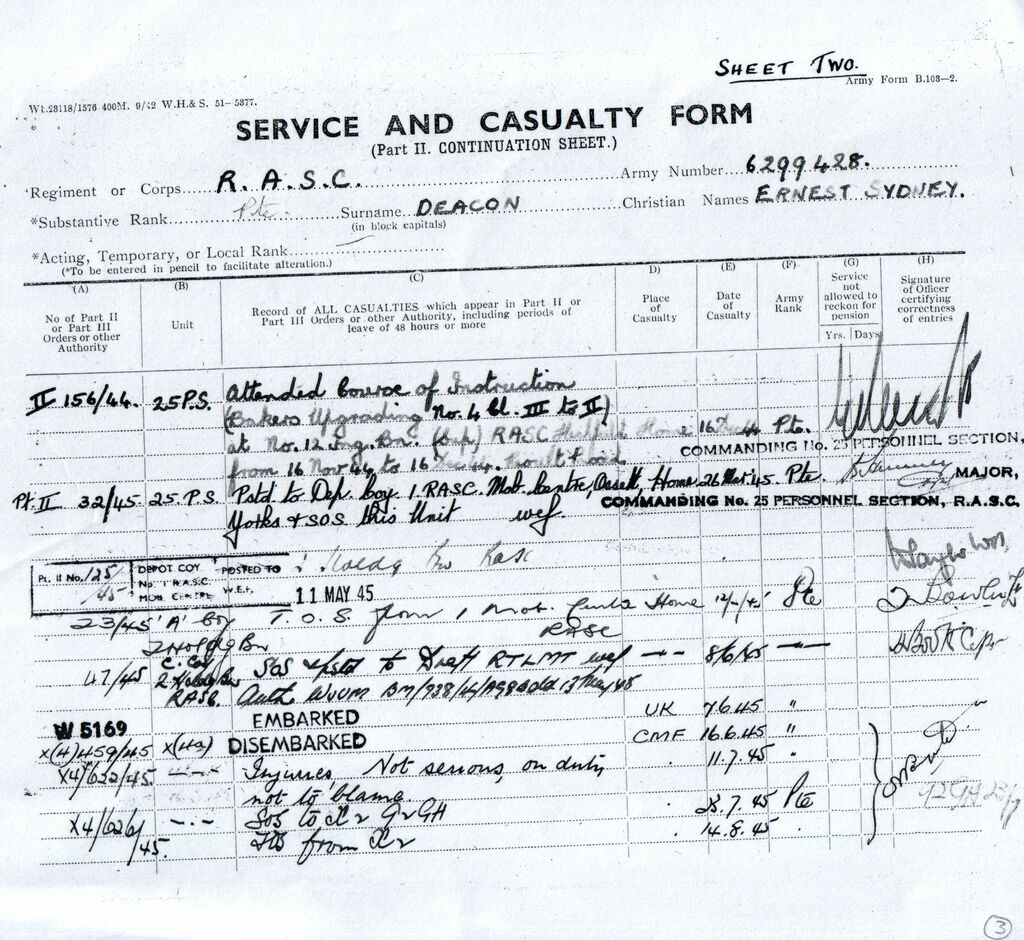 SHEET TWO.
Army Form B.103—2.
Wt.28118/1576 400M. 9/42 W.H.& S. 51-5377.
SERVICE AND CASUALTY FORM
(Part II. CONTINUATION SHEET.)
Regiment or Corps R.A.S.C. Army Number 6299428.
*Substantive Rank Pte. Surname DEACON Christian Names ERNEST SYDNEY.
(in block capitals)
*Acting, Temporary, or Local Rank
(*To be entered in pencil to facilitate alteration.)
(A) (B) (C) (D) (E) (F) (G) (H)
No of Part II or Part III Orders or other Authority
Unit
Record of ALL CASUALTIES which appear in Part II or Part III Orders or other Authority, including periods of leave of 48 hours or more
Place of Casualty
Date of Casualty
Army Rank
Service not allowed to reckon for pension
Yrs. Days
Signature of Officer certifying correctness of entries
II 156/44. 25 P.S. Attended Course of Instruction
(Bakers Upgrading No. 4 Cl. III to II)
at No. 12 Trg. Bn. RASC Home 16 Pte.
from 16 Nov 44 to 16 Dec 44.
COMMANDING No. 25 PERSONNEL SECTION,
Pt. II 32/45 25 P.S. Potd to Dep. Coy 1 RASC. Mob. Centre, Ossett, Home 26 Mar 45 Pte MAJOR,
Yorks & SOS this Unit wef.
COMMANDING No. 25 PERSONNEL SECTION, R.A.S.C.
Pt. II No. 125/45 DEPOT COY No. 1 R.A.S.C. MOB. CENTRE POSTED TO W.E.F. 11 MAY 45
Holdg Bn RASC
23/45 'A' Coy T.O.S. from 1 Mob. Centre Home Pte
2 Holdg Bn RASC
47/45 C. Coy SOS & pstd to Draft RTLMT wef 8/6/45
2 Holdg Bn RASC. Auth. 13 May 45
W 5169 EMBARKED UK 7.6.45 "
X(4)459/45 X(4a) DISEMBARKED CMF 16.6.45 "
X4/622/45. —·— Injuries Not serious, on duty 11.7.45
not to blame
X4/626/45. —·— SOS to GH 23.7.45 Pte
TOS from 14.8.45
3